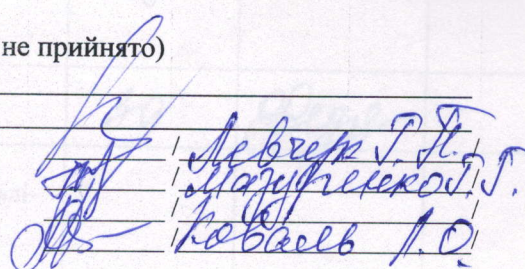 не прийнято)
/ Левчук Г. П. /
/ Мазурченко Г. Г.
/ Коваль Л. О. /